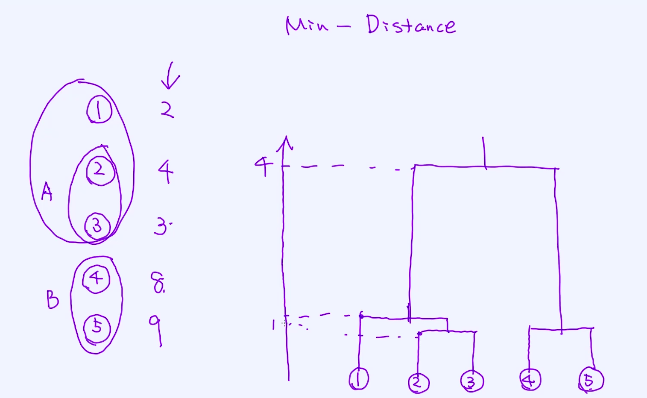 Min - Distance
↓
① 2
② 4
A
③ 3
④ 8
B
⑤ 9
4
1
① ② ③ ④ ⑤